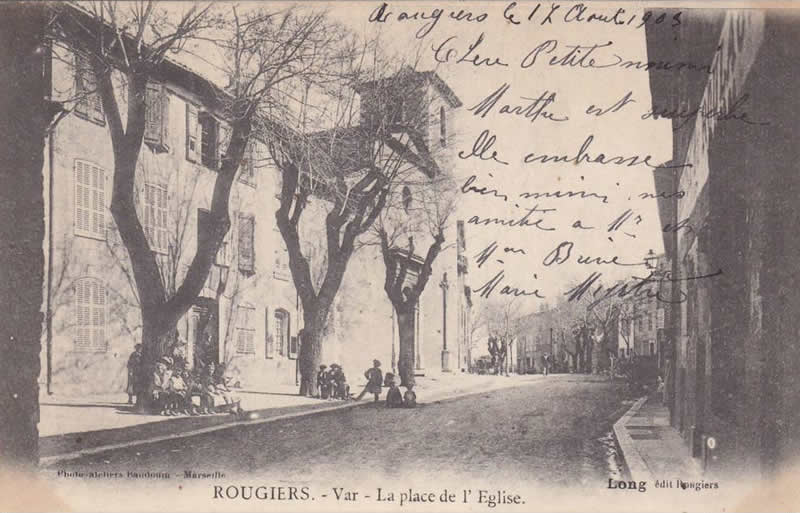 Rougiers le 17 Août 1903
Chère Petite mimi
Marthe est superbe
Elle embrasse
bien mimi, nos
amitié a Mr et
Mme
Marie
Photo-ateliers Baudouin - Marseille
ROUGIERS. - Var - La place de l' Eglise.
Long édit Rougiers